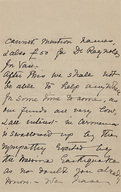 cannot mention names,
also £50 for Dr Reynolds
for Van.
After this we shall not
be able to help any
for some time to come, as
our funds are very low,
interest in Armenia
is swallowed up by the
sympathy evoked by
the Messina Earthquake
as no doubt you already
know. We have